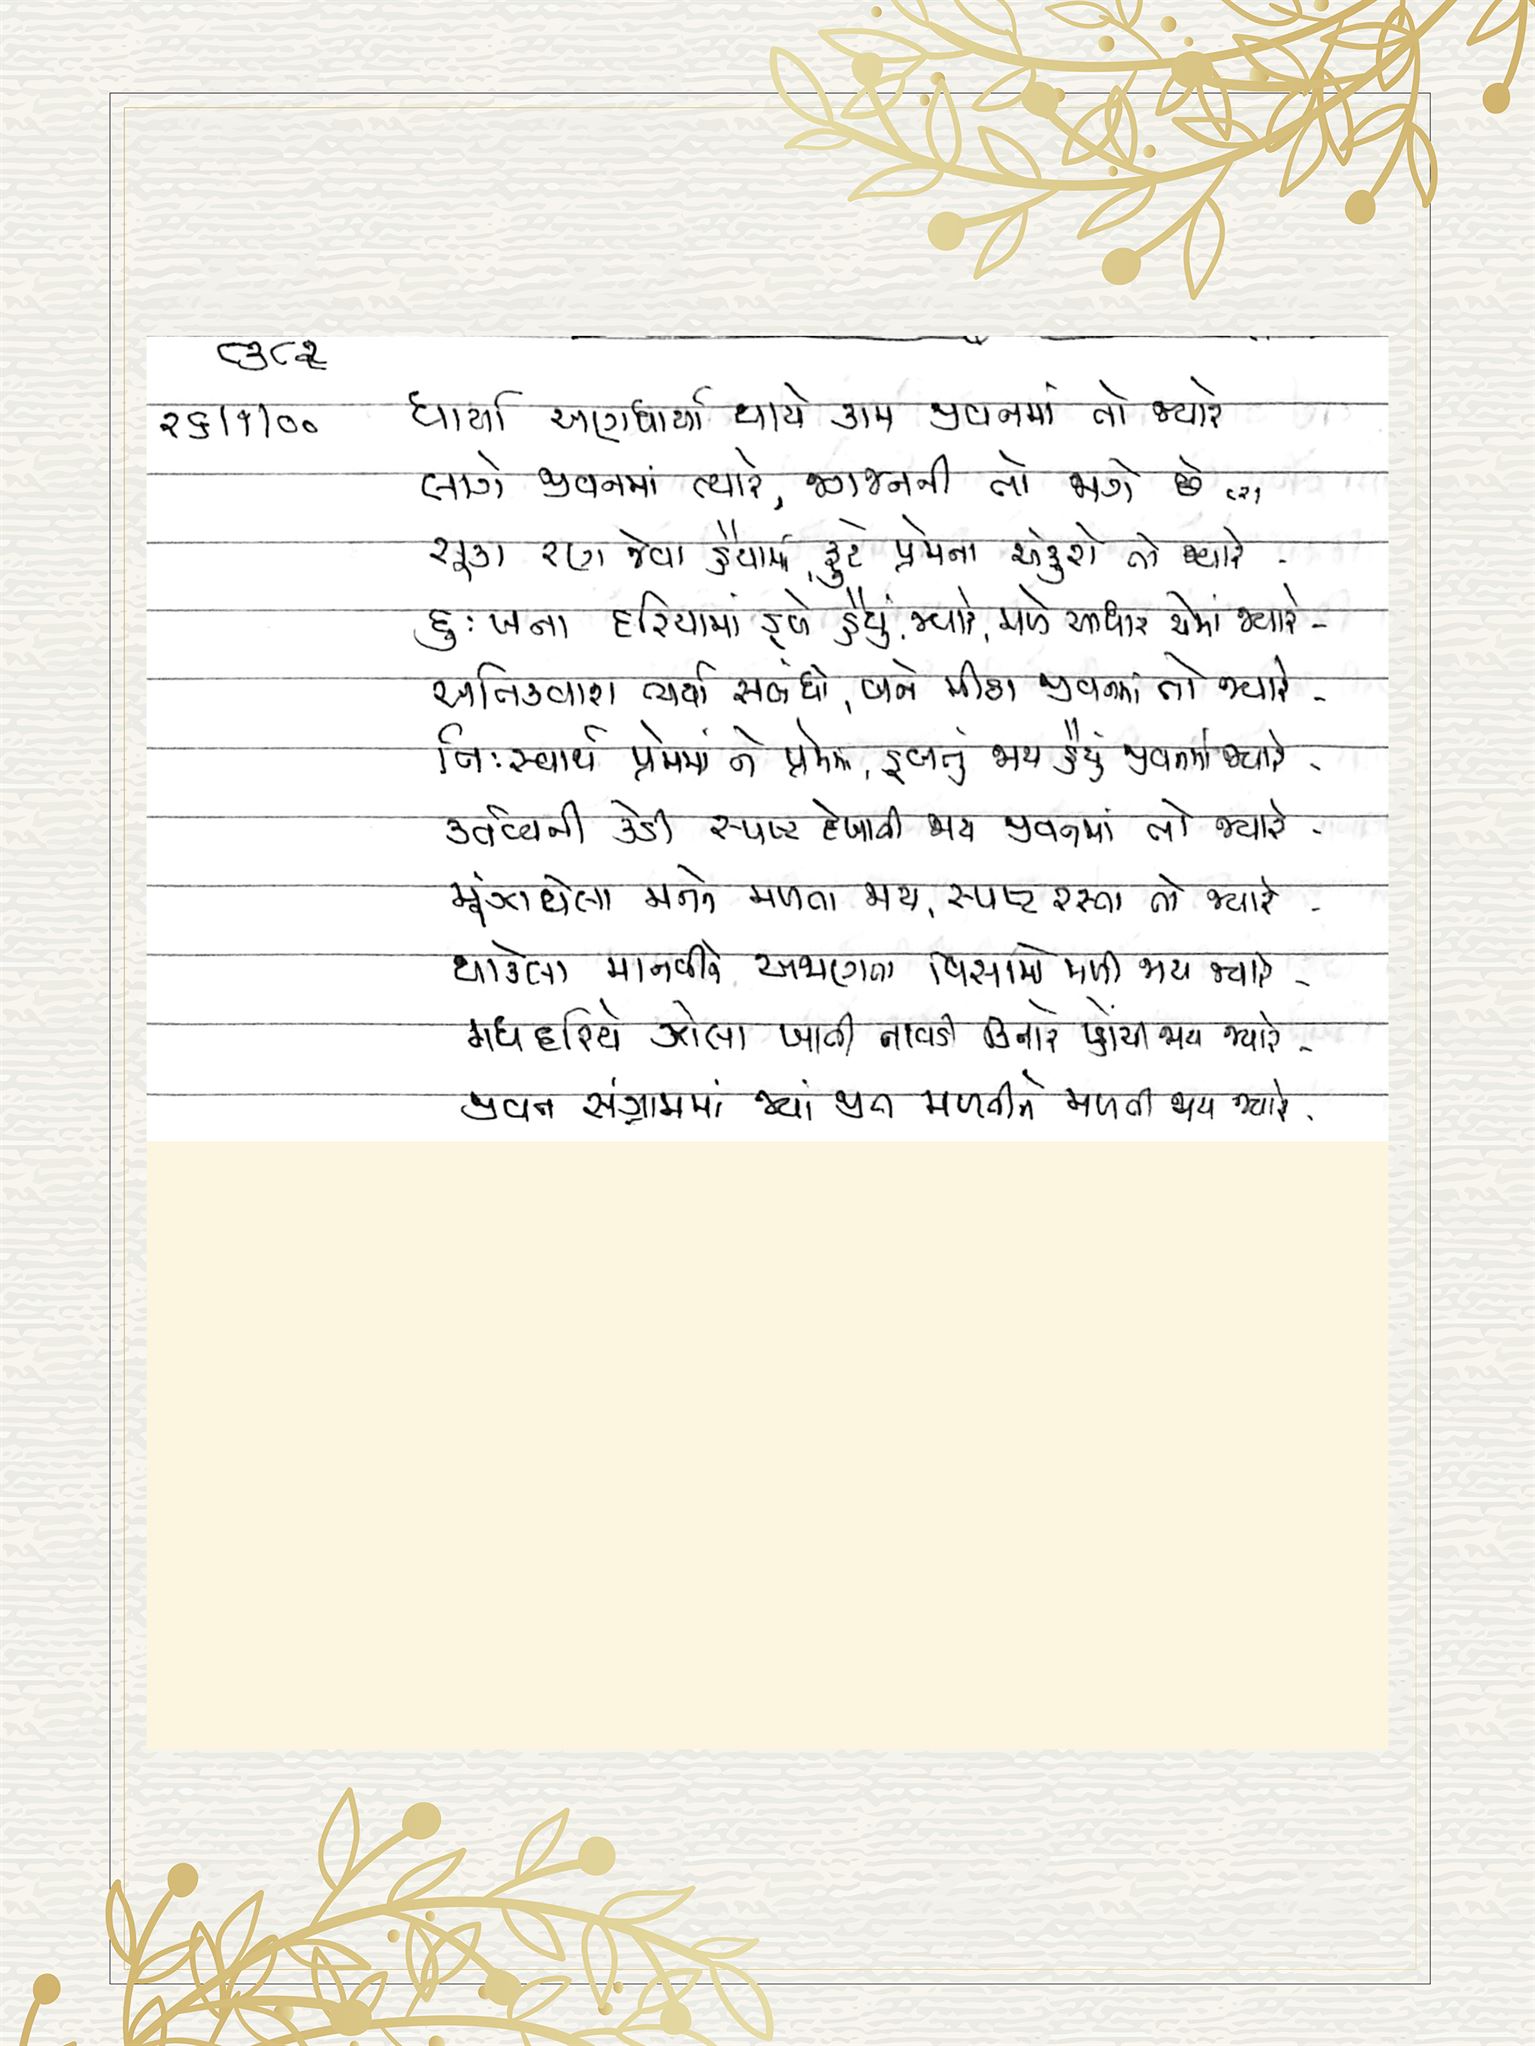 ૮૩૮૨
૨૬/૧/૦૦ ધાર્યા અણધાર્યા થાયે કામ જીવનમાં તો જ્યારે
લાગે જીવનમાં ત્યારે, જાગજનની તો ભગો છે
સૂકા રણ જેવા હૈયામાં, ફુટે પ્રેમના અંકુરો તો જ્યારે -
દુઃખના દરિયામાં ડૂબે હૈયું જ્યારે, મળે આધાર એમાં જ્યારે -
અનિકવાશ ત્યર્યા સબંધો, બને મીઠા જીવનમાં તો જ્યારે -
નિઃસ્વાર્થ પ્રેમમાં ને પ્રેમમાં, ડૂબતું જાય હૈયું જીવનમાં જ્યારે -
કર્તવ્યની કેડી સ્પષ્ટ દેખાતી જાય જીવનમાં તો જ્યારે -
મૂંઝાયેલા મનને મળતા જાય, સ્પષ્ટ રસ્તા તો જ્યારે -
થાકેલા માનવીને અજાણતા વિસામો મળી જાય જ્યારે -
મધદરિયે ઝોલા ખાતી નાવડી કિનારે પહોંચી જાય જ્યારે -
જીવન સંગ્રામમાં જ્યાં જીત મળતીને મળતી જાય જ્યારે -